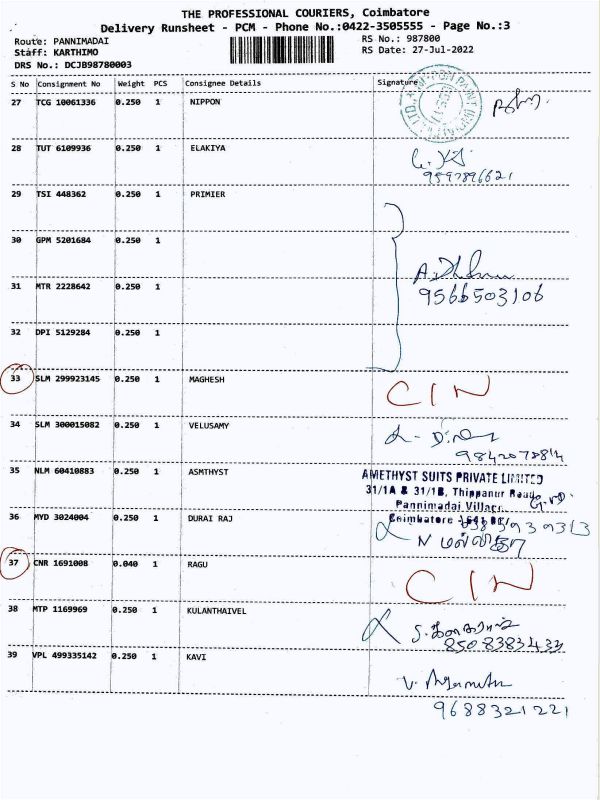 THE PROFESSIONAL COURIERS, Coimbatore
Delivery Runsheet - PCM - Phone No.:0422-3505555 - Page No.:3
Route: PANNIMADAI RS No.: 987800
Staff: KARTHIMO RS Date: 27-Jul-2022
DRS No.: DCJB98780003
S No Consignment No Weight PCS Consignee Details Signature
27 TCG 10061336 0.250 1 NIPPON
28 TUT 6109936 0.250 1 ELAKIYA
9597896621
29 TSI 448362 0.250 1 PRIMIER
30 GPM 5201684 0.250 1
31 MTR 2228642 0.250 1
9566503106
32 DPI 5129284 0.250 1
33 SLM 299923145 0.250 1 MAGHESH CIN
34 SLM 300015082 0.250 1 VELUSAMY
9842078814
35 NLM 60410883 0.250 1 ASMTHYST AMETHYST SUITS PRIVATE LIMITED
31/1A & 31/1B, Thippanur Road
Pannimadai Village
36 MYD 3024004 0.250 1 DURAI RAJ Coimbatore
37 CNR 1691008 0.040 1 RAGU CIN
38 MTP 1169969 0.250 1 KULANTHAIVEL
8508383433
39 VPL 499335142 0.250 1 KAVI
9688321221